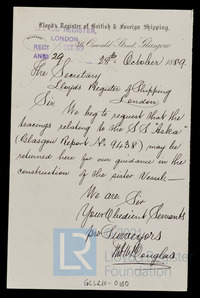 Lloyd's Register of British & Foreign Shipping.
REGISTER,
LONDON
REC
36, Oswald Street, Glasgow
ANS 29
28th October 1889
The Secretary
Lloyds Register of Shipping
London
Sir We beg to request that the
tracings relating to the S.S.
(Glasgow Report No 9438) may be
returned here for our guidance in the
construction of the sister vessel:-
We are Sir
Your Obedient Servants
pro Surveyors
Douglas
Foundation
GLS210-0180